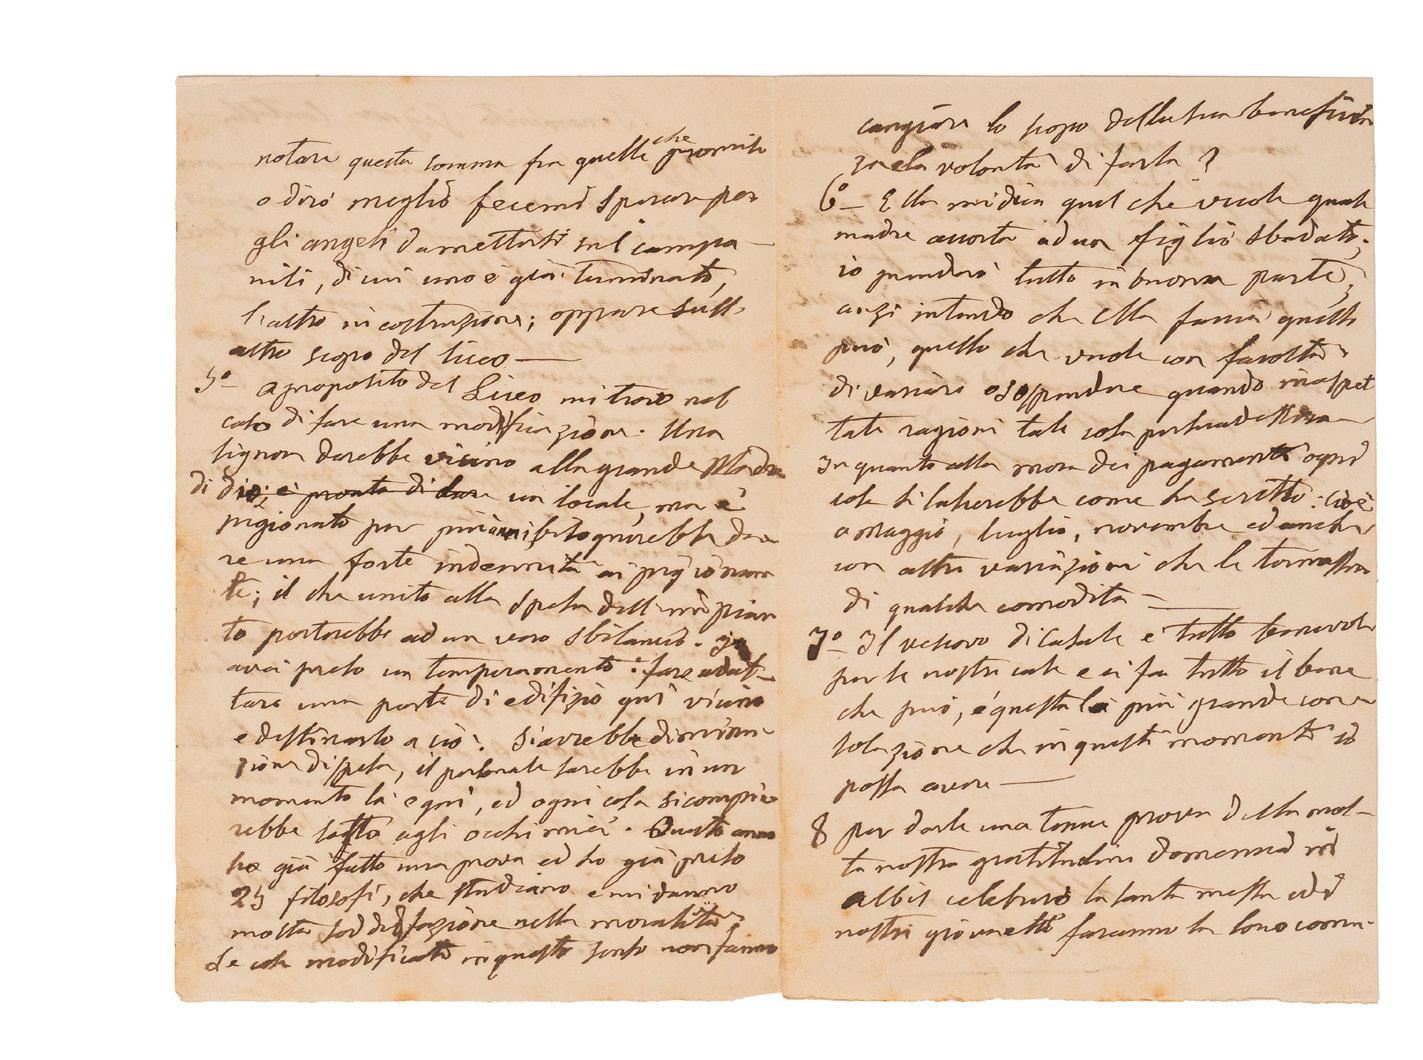 notare questa somma fra quelle che promise
o dirò meglio fecemi sperare per
gli angeli da mettersi sul campa-
nili, di cui uno è già terminato,
l'altro in costruzione; oppure sull'
altro scopo del liceo —
5º a proposito del Liceo mi trovo nel
caso di fare una modificazione. Una
signora darebbe vicino alla grande Madre
di Dio, è pronta di dare un locale, ma è
pigionato per più anni, bisognerebbe da-
re una forte indennità ai pigionan
ti; il che unito alla spesa dell'impian
to porterebbe ad un vero sbilancio. Io
avrei preso un temperamento: fare adat-
tare una parte di edifizio qui vicino
e destinarlo a ciò. Si avrebbe diminu-
zione di spesa, il personale sarebbe in un
momento là e qui, ed ogni cosa si compi
rebbe sotto agli occhi miei. Questo anno
ho già fatto una prova ed ho già preso
25 filosofi, che studiano e mi danno
molta soddisfazione nella moralità.
Le cose modificate in questo senso non fanno
cangiare lo scopo della sua beneficen
za e la volontà di farla?
6º — Ella mi dica quel che vuole quale
madre accorta ad un figlio sbadato;
io prenderò tutto in buona parte;
anzi intendo che Ella faccia quello
può, quello che vuole con facoltà
di variare o sospendere quando inaspet
tate ragioni tale cosa persuadessero —
In quanto alla mora dei pagamenti ogni
cosa si lascerebbe come ha scritto: cioè
a Maggio, luglio, novembre ed anche
con altre variazioni che le tornassero
di qualche comodità —
7º Il vescovo di Casale è tutto benevolo
per le nostre case e ci fa tutto il bene
che può, è questa la più grande con-
solazione che in questi momenti io
possa avere —
8 per darle una tenue prova della mol-
ta nostra gratitudine domenica in
albis celebrerò la santa messa ed i
nostri giovanetti faranno la loro comu-